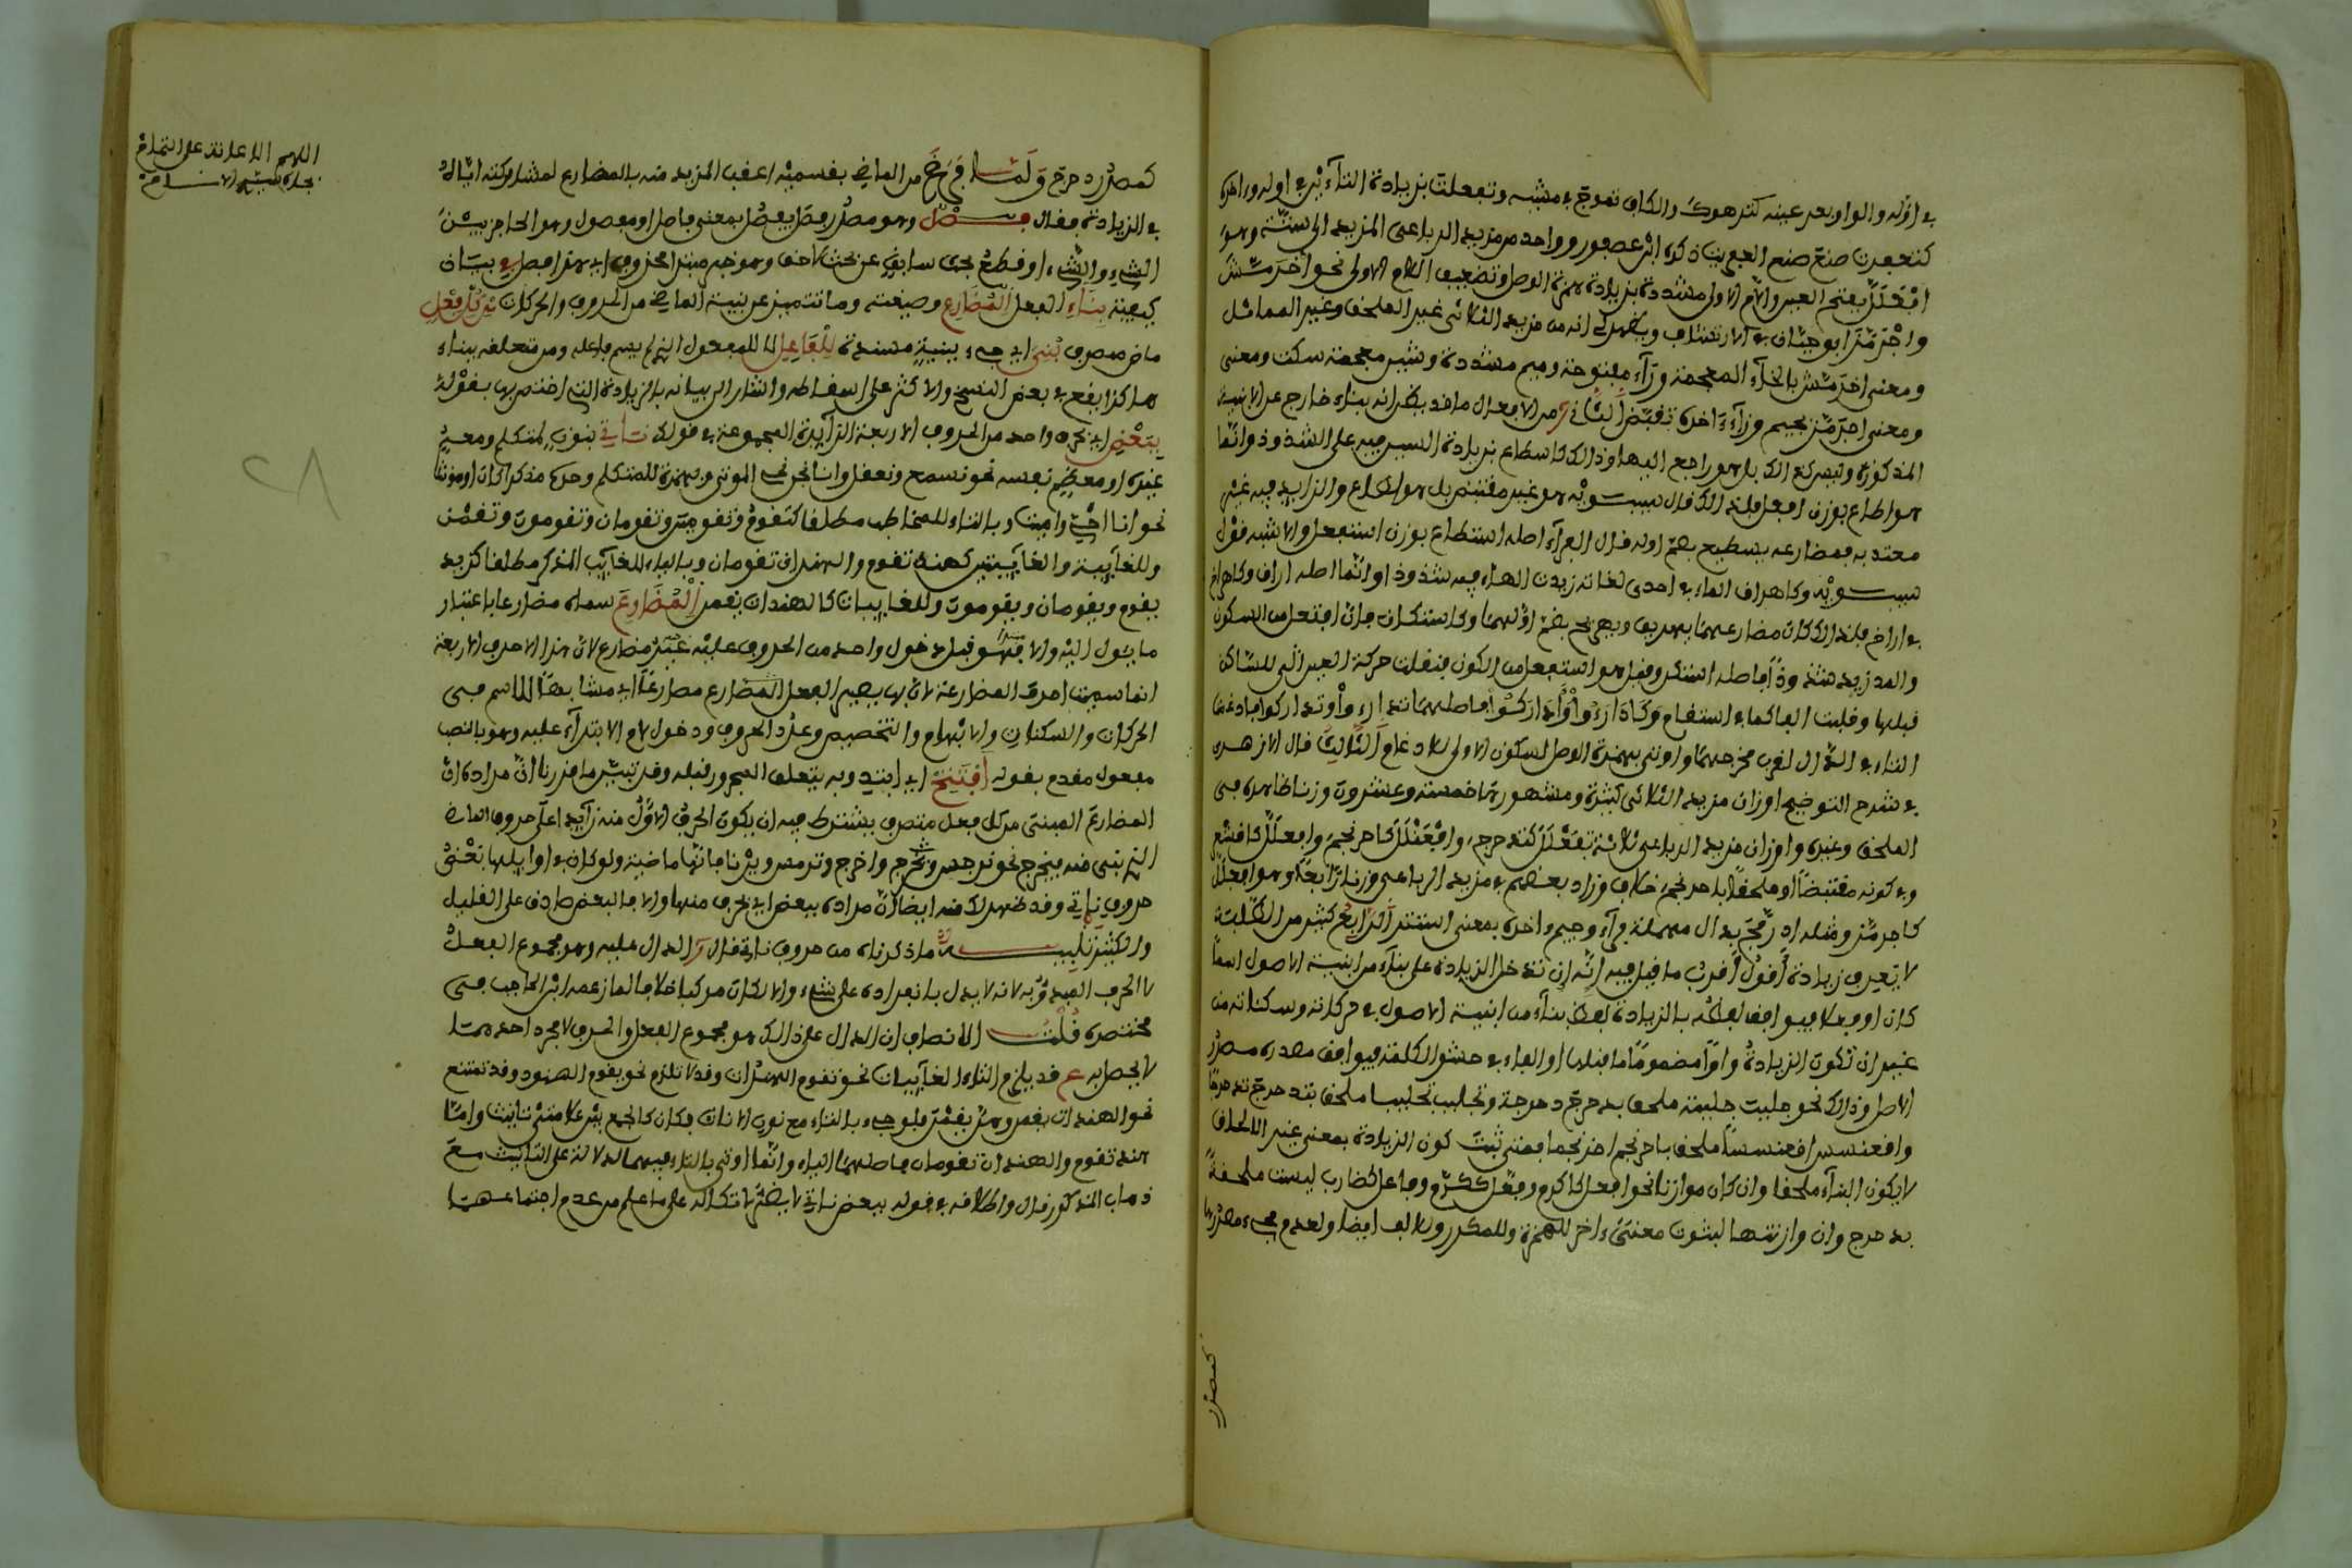 في اوله والواو بعد عينه كترهوك والكاف تموج في مشيه وتفعلت بزيادة التاءين في اوله وءاخره
كتعفرت صنع صنع العفريت ذكره ابن عصفور وواحد من مزيد الرباعي المزيد الى ستة وهو
افعلل بفتح العين واللام الاولى مشددة بزيادة همزة الوصل وتضعيف اللام الاولى نحو اخرمش
واجرمز ابو حيان في الارتشاف ويظهر لي انه من مزيد الثلاثي غير الملحق وغير المماثل
ومعنى اخرمش بالخاء المعجمة وراء مفتوحة وميم مشددة وشين معجمة سكت ومعنى
ومعنى اجرمز بجيم وزاي ءاخره تقبض الثاني من الافعال ما قد يظن انه بناء خارج عن الابنية
المذكورة وليس كذلك بل هو راجع اليها وذلك كاسطاع بزيادة السين فيه على الشذوذ وانما
هو اطاع بوزن افعل فلذلك قال سيبويه هو غير مقتضب بل هو اطاع والزايد فيه غير
معتد به فمضارعه يسطيع بضم اوله قال الفراء اصله استطاع بوزن استفعل والاشبه قول
سيبويه وكاهراق الماء في احدى لغاته زيدت الهاء فيه شذوذا وانما اصله اراق وكاهراح
في اراح فلذلك كان مضارعهما يهريق ويهريح بضم اولهما وكاستكان فان افتعل من السكون
والمد زيد شذوذا فاصله استكن وقيل هو استفعل من الكون فنقلت حركة العين التي للساكن
قبلها وقلبت الفا كما في استقام وكادارءوا واداركوا فاصلهما تدارءوا وتداركوا فادغمت
التاء في الدال لقرب مخرجهما واوتي بهمزة الوصل لسكون الاولى للادغام الثالث قال الازهري
في شرح التوضيح اوزان مزيد الثلاثي كثيرة ومشهورها خمسة وعشرون وزنا ظاهره في
الملحق وغيره واوزان مزيد الرباعي ثلاثة تفعلل كتدحرج وافعنلل كاحرنجم وافعلل كاقشعر
وفي كونه مقتضبا او ملحقا باحرنجم خلاف وزاد بعضهم في مزيد الرباعي وزنا رابعا وهو افعلل
كاجرمز ومثله ادرمج بدال مهملة فراء وجيم ءاخره بمعنى استتر الرابع كثير من الطلبة
لا يعرف زيادة اقول اقرب ما قيل فيه انه ان تدخل الزيادة على بناء من ابنية الاصول اسما
كان او فعلا فيوافق لفظه بالزيادة لفظ بناء من ابنية الاصول في حركاته وسكناته من
غير ان تكون الزيادة واوا مضموما ما قبلها او الفاء في حشو الكلمة فيوافق مصدره مصدر
الاصل وذلك نحو جلببت جلببة ملحق بدحرج دحرجة وتجلبب تجلببا ملحق بتدحرج تدحرجا
واقعنسس اقعنسسا ملحق باحرنجم احرنجاما فمتى ثبت كون الزيادة بمعنى غير الالحاق
لا يكون البناء ملحقا وان كان موازنا نحو افعل كاكرم وفعل ككرم وفاعل كضارب ليست ملحقة
بدحرج وان وازنتها لثبوت معنى ءاخر للهمزة وللمكرر وللالف ايضا ولعدم مجيء مصدرها
كمصدر
كمصدر دحرج ولما فرغ من الماضي بقسميه اعقب المزيد منه بالمضارع لمشاركته اياه
في الزيادة فقال فصل وهو مصدر فصل يفصل بمعنى فاصل او مفصول وهو الحاجز بين
الشيء والشيء او قطع بحث سابق عن بحث لاحق وهو خبر مبتدا محذوف اي هذا فصل في بيان
كيفية بناء الفعل المضارع وصيغته وما تتميز عن بنية الماضي من الحروف والحركات من كل فعل
ماض متصرف بني اي جيء ببنية مسندة للفاعل لا للمفعول الذي لم يسم فاعله ومن متعلقه بناء
هاكذا يقع في بعض النسخ والاكثر على اسقاطه واشار الى بيانه بالزيادة التي اختص بها بقوله
ببعض اي بحرف واحد من الحروف الاربعة الزايدة المجموعة في قولك ناتي بنون لمتكلم ومعه
غيره او معظم نفسه نحو نسمع ونعقل وانا نحن نحي الموتى وبهمزة للمتكلم وحده مذكرا كان او مونثا
نحو انا احي واميت وبالتاء للمخاطب مطلقا كتقوم وتقومين وتقومان وتقومون وتقمن
وللغايبة والغايبتين كهند تقوم والهندان تقومان وبالياء للغايب المذكر مطلقا كزيد
يقوم ويقومان ويقومون وللغايبات كالهندات يقمن المضارع سماه مضارعا باعتبار
ما يئول اليه والا فهو قبل دخول واحد من الحروف عليه غير مضارع لان هذا الاحرف الاربعة
انما سميت احرف المضارعة لان بها يصير الفعل المضارع مضارعا اي مشابها للاسم في
الحركات والسكنات والابهام والتخصيص وعدد الحروف ودخول لام الابتداء عليه وهو بالنصب
مفعول مقدم بقوله افتتح اي ابتدئ وبه يتعلق المجرور قبله وقد تبين مما قررنا ان مراده ان
المضارع المبني من كل فعل متصرف يشترط فيه ان يكون الحرف الاول منه زايدا على حروف الماضي
الذي بني منه فيخرج نحو نرجس وتخرج واخرج وترمس ويرنا فانها ماضية ولو كان في اوايلها بعض
حروف ناتي وقد ظهر لك منه ايضا ان مراده ببعض اي بحرف منها والا فالبعض صادق على القليل
والكثير تنبيه ما ذكرناه من حروف ناتي قال الدال عليه وهو مجموع الفعل
لا الحرف المبدوء به لانه لا يدل بانفراده على شيء والا لكان مركبا خلافا لما زعمه ابن الحاجب في
مختصره قلت الانصاف ان الدال على ذلك هو مجموع الفعل والحرف لا مجرد احدهما
لا يحصل به قد يلزم التاء الغايبات نحو تقوم الهندات وقد لا تلزم نحو يقوم الهنود وقد تمتنع
نحو الهندات يقمن وهن يقمن فلو جيء بالتاء مع نون الاناث فكان كالجمع بين علامتي تانيث واما
هند تقوم والهندان تقومان فاصلهما الياء وانما اوتي بالتاء فيهما للدلالة على التانيث مع
ذهاب المذكور قال واطلاقه في قوله ببعض ناتي لا يضر اتكالا على ما علم من عدم اجتماعهما
اللهم الاعانة على التمام
بجاه